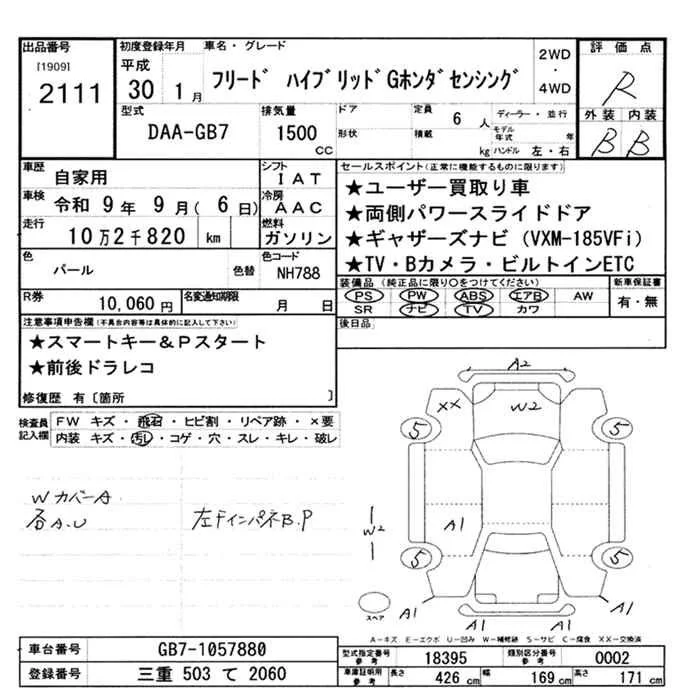 出品番号
[1909]
2111
初度登録年月
平成
30 1 月
車名・グレード
フリード ハイブリッドGホンダセンシング
2WD
・
4WD
評価点
R
外装 内装
B B
型式
DAA-GB7
排気量
1500
CC
ドア
形状
定員
6 人
積載
kg
ディーラー・並行
モデル年式 年
ハンドル 左・右
車歴
自家用
シフト
IAT
車検
令和 9 年 9 月 ( 6 日)
冷房
AAC
走行
10万2千820 km
燃料
ガソリン
色
パール
色替
色コード
NH788
R券
10,060 円
名変通知期限
月 日
セールスポイント(正常に機能するものに限ります)
★ユーザー買取り車
★両側パワースライドドア
★ギャザーズナビ (VXM-185VFi)
★TV・Bカメラ・ビルトインETC
装備品 (純正品に限り○をつけてください)
PS PW ABS エアB AW
SR ナビ TV カワ
新車保証書
有・無
後日品
注意事項申告欄 (不具合内容等は具体的に記入して下さい)
★スマートキー&Pスタート
★前後ドラレコ
修復歴 有〔箇所 〕
検査員記入欄
FW キズ・飛石・ヒビ割・リペア跡・×要
内装 キズ・汚れ・コゲ・穴・スレ・キレ・破レ
WカバーA
各A.U
左FインパネB.P
A2
XX
W2
5
5
W2
A1
5
5
スペア
A1
A1
A1
A1
A-キズ E-エクボ U-凹み W-補修跡 S-サビ C-腐食 XX-交換済
車台番号
GB7-1057880
登録番号
三重 503 て 2060
型式指定番号
参考
18395
類別区分番号
参考
0002
車庫証明用
参考
長さ
426 cm
幅
169 cm
高さ
171 cm